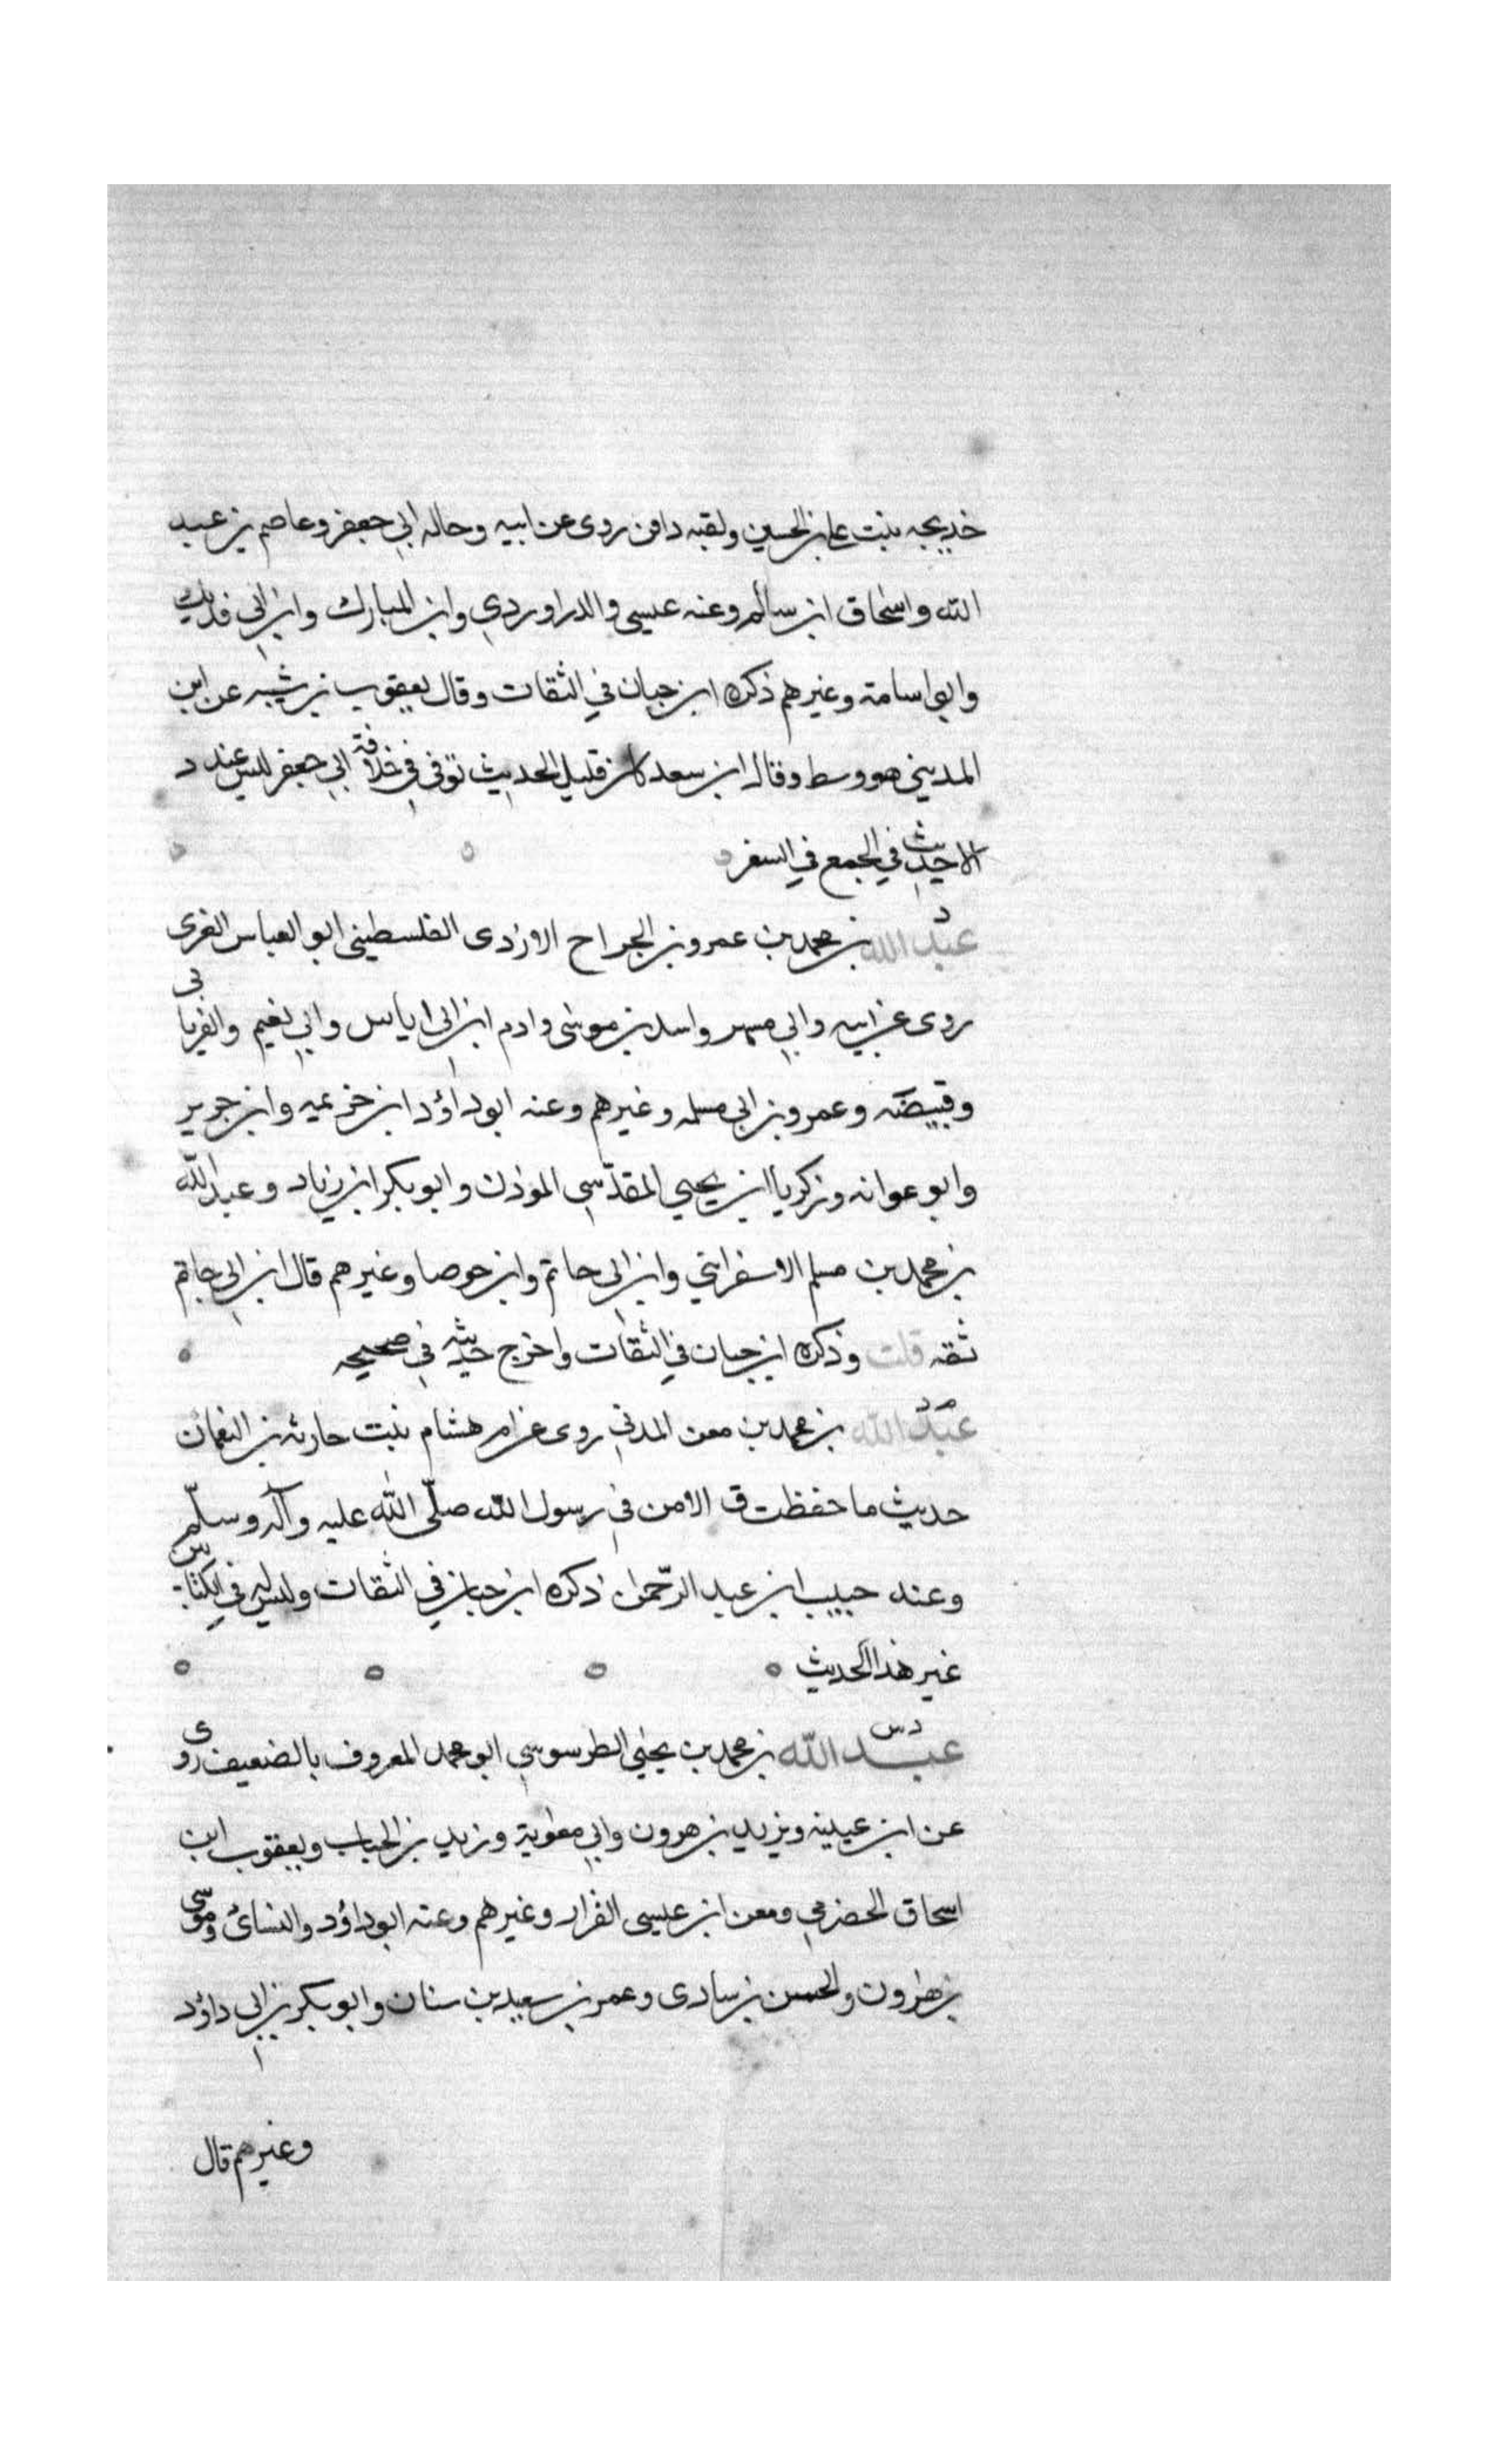 خديجه بنت على بن الحسين ولقبه دافن روى عن ابيه وخاله ابي جعفر وعاصم بن عبيد
الله واسحاق ابن سالم وعنه عيسى والدراوردي وابن المبارك وابن ابي فديك
وابو اسامة وغيرهم ذكره ابن حبان في الثقات وقال يعقوب بن شيبه عن ابن
المديني هو وسط وقال ابن سعد كان قليل الحديث توفى في خلافة ابي جعفر ليس عند د
الا حديث في الجمع في السفر
د
عبد الله بن محمد بن عمرو بن الجراح الازدى الفلسطينى ابو العباس الغزى
روى عن ابيه وابي مسهر واسد بن موسى وادم ابن ابى اياس وابي نعيم والفريابى
وقبيصه وعمرو بن ابى سلمه وغيرهم وعنه ابو داؤد ابن خزيمه وابن جرير
وابو عوانه وزكريا ابن يحيى المقدّسي الموذن وابو بكر ابن زياد وعبد اللّه
بن محمد بن مسلم الاسفرايني وابن ابى حاتم وابن حوصا وغيرهم قال ابن ابى حاتم
ثقه قلت وذكره ابن حبان في الثقات واخرج حديثه في صحيحه
م د
عبد الله بن محمد بن معن المدنى روى عن ام هشام بنت حارثه بن النعمان
حديث ما حفظت ق الا من في رسول اللّه صلّى اللّه عليه وآله وسلّم
وعنه حبيب ابن عبد الرّحمن ذكره ابن حبان في الثقات وليس له في الكتابين
غير هذا الحديث
د س
عبد اللّه بن محمد بن يحيى الطرسوسي ابو محمد المعروف بالضعيف روى
عن ابن عيينه ويزيد بن هرون وابي معٰوية وزيد بن الحباب ويعقوب ابن
اسحاق الحضرمي ومعن ابن عيسى القزاز وغيرهم وعنه ابو داؤد والنسائى وموسى
بن هٰرون والحسن بن سادى وعمر بن سعيد بن سنان وابو بكر بن ابى داؤد
وغيرهم قال